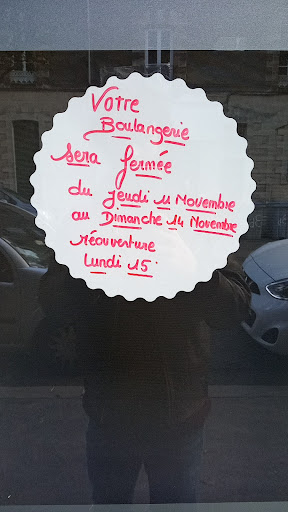 Votre
Boulangerie
sera fermée
du Jeudi 11 Novembre
au Dimanche 14 Novembre
réouverture
Lundi 15